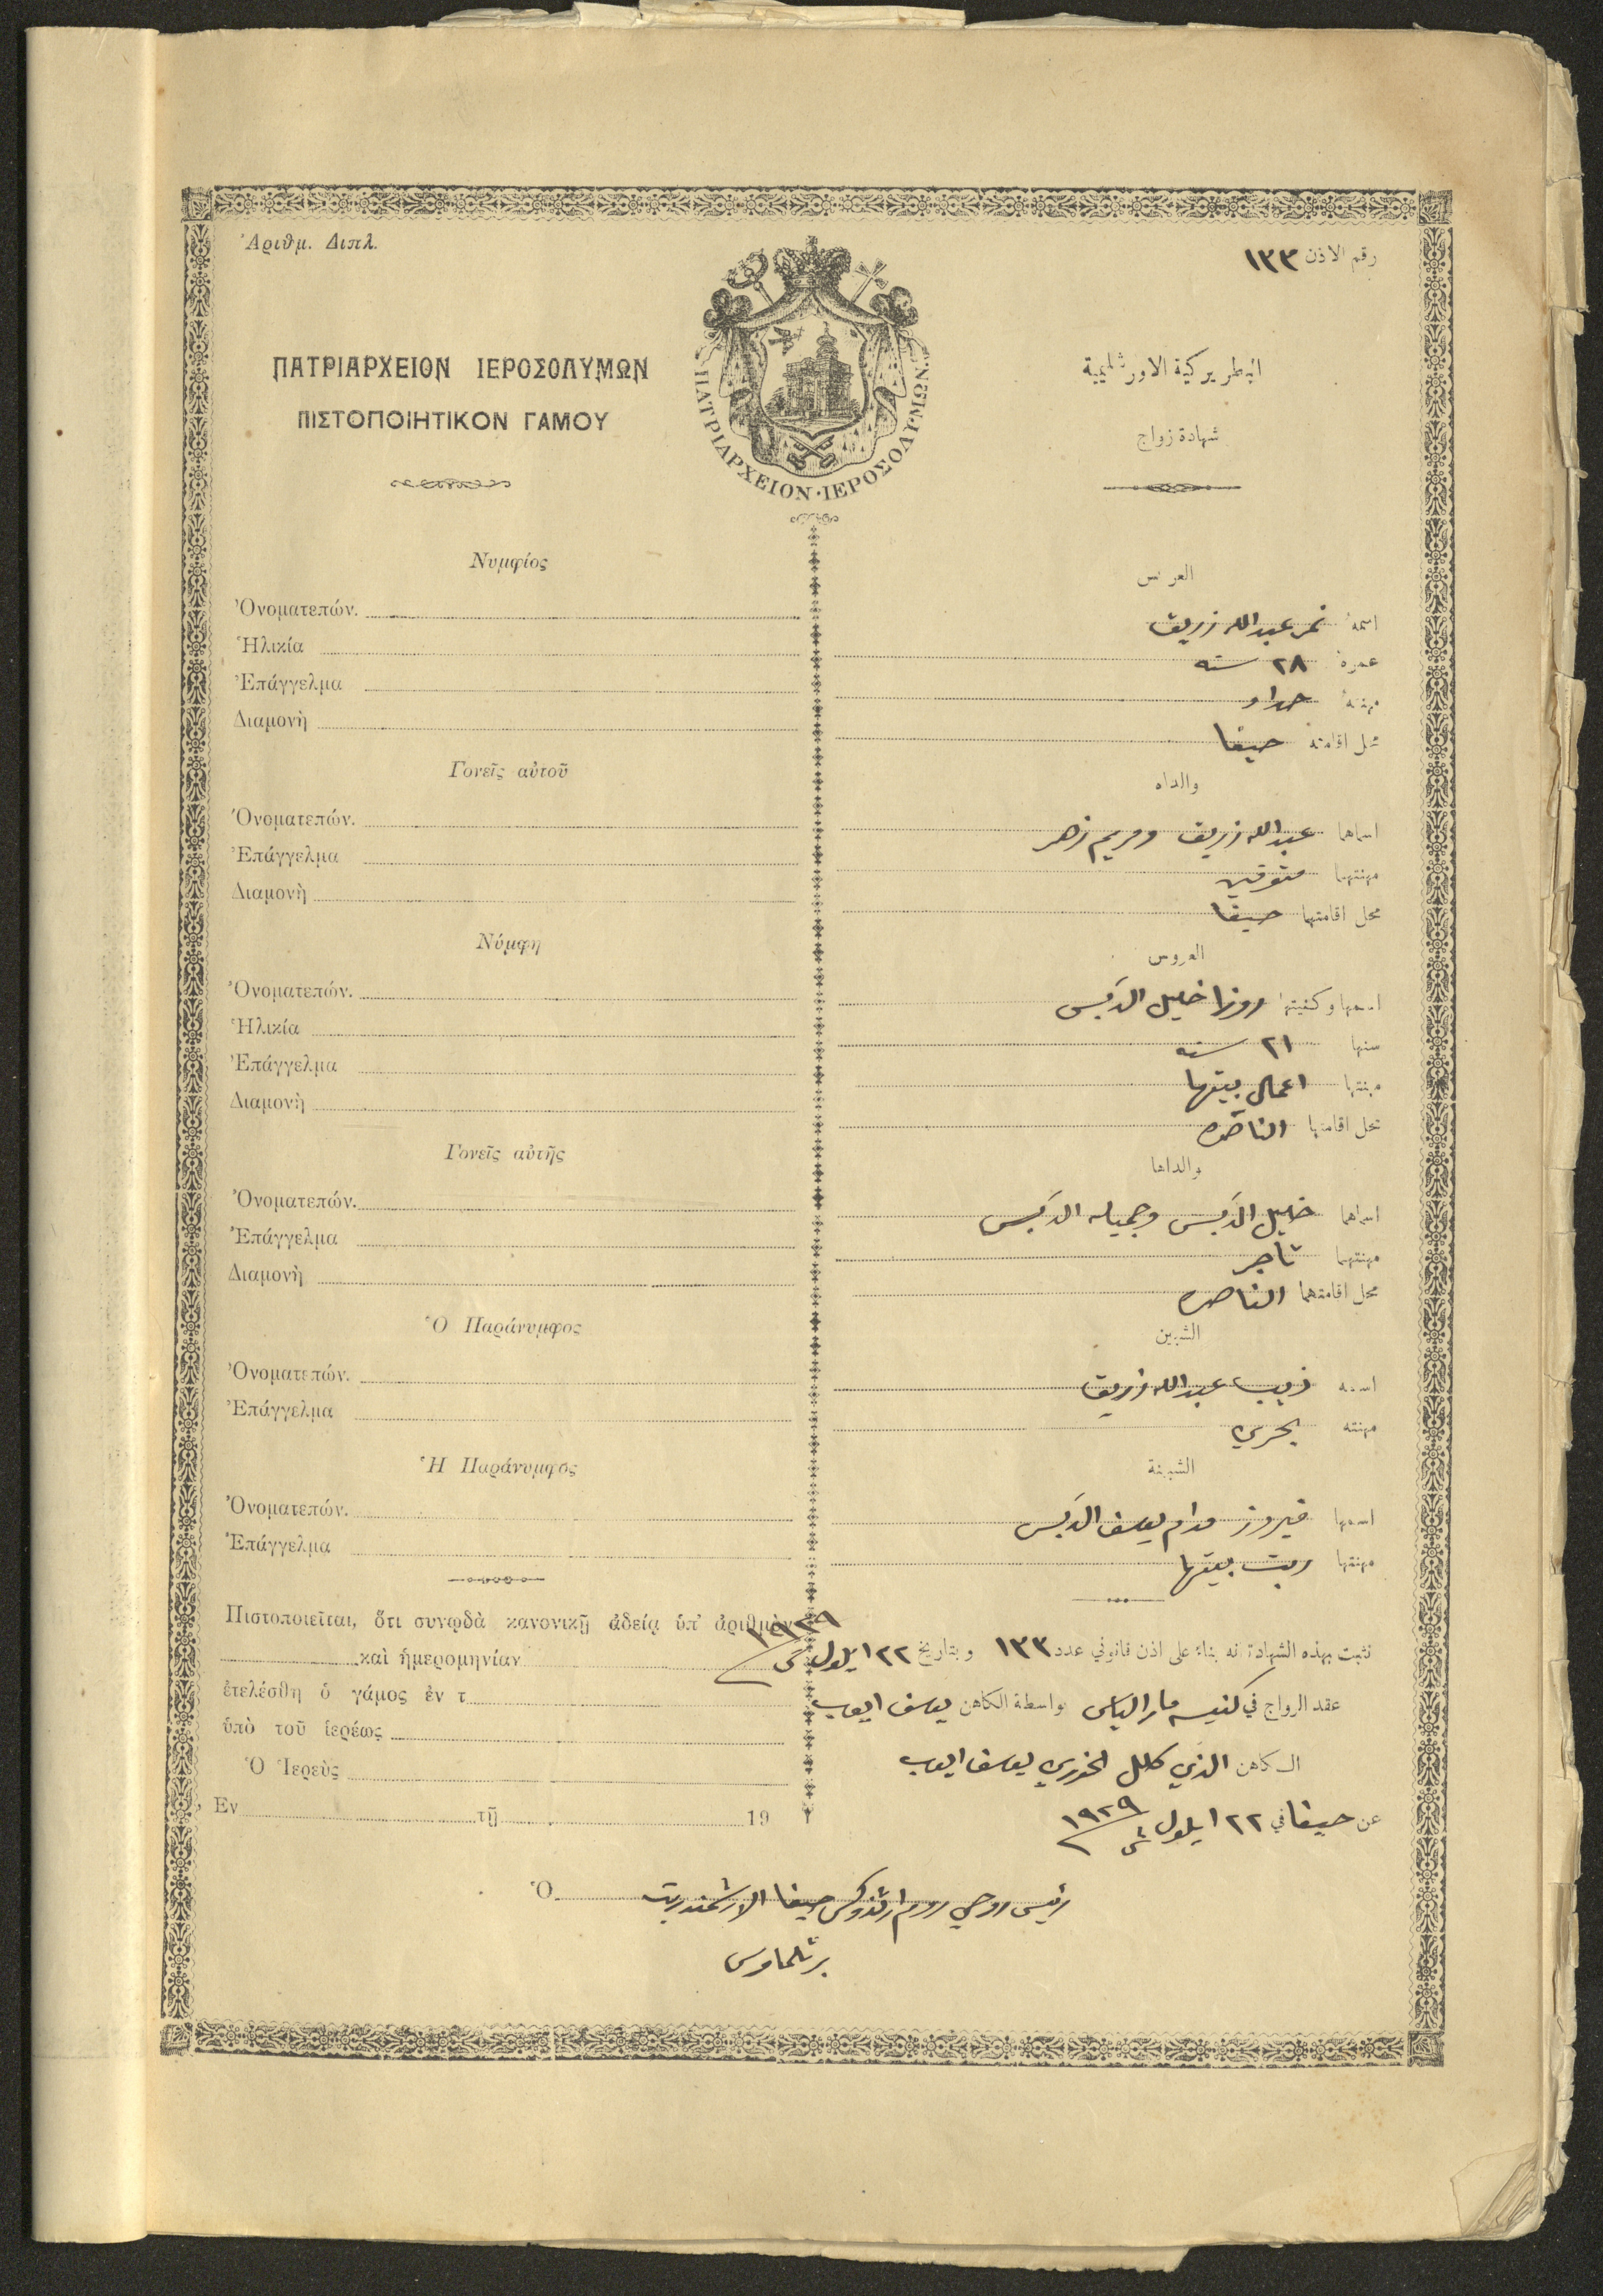 Ἀριθμ. Διπλ.
رقم الاذن ١٣٣
ΠΑΤΡΙΑΡΧΕΙΟΝ ΙΕΡΟΣΟΛΥΜΩΝ
ΠΙΣΤΟΠΟΙΗΤΙΚΟΝ ΓΑΜΟΥ
ΠΑΤΡΙΑΡΧΕΙΟΝ·ΙΕΡΟΣΟΛΥΜΩΝ
البطريركية الاورشليمية
شهادة زواج
Νυμφίος
Ὀνοματεπών.
Ἡλικία
Ἐπάγγελμα
Διαμονὴ
Γονεῖς αὐτοῦ
Ὀνοματεπών.
Ἐπάγγελμα
Διαμονὴ
Νύμφη
Ὀνοματεπών.
Ἡλικία
Ἐπάγγελμα
Διαμονὴ
Γονεῖς αὐτῆς
Ὀνοματεπών.
Ἐπάγγελμα
Διαμονὴ
Ὁ Παράνυμφος
Ὀνοματεπών.
Ἐπάγγελμα
Ἡ Παράνυμφος
Ὀνοματεπών.
Ἐπάγγελμα
Πιστοποιεῖται, ὅτι συνῳδὰ κανονικῇ ἀδείᾳ ὑπ' ἀριθμὸν
καὶ ἡμερομηνίαν
ἐτελέσθη ὁ γάμος ἐν τ
ὑπὸ τοῦ ἱερέως
Ὁ Ἱερεὺς
Ἐν τῇ 19
العريس
اسمه نمر عبدالله زريق
عمره ٢٨ سنه
مهنته حداد
محل اقامته حيفا
والداه
اسماهما عبدالله زريق ومريم زهر
مهنتهما متوفين
محل اقامتهما حيفا
العروس
اسمها وكنيتها روزا خليل الدبس
سنها ٢١ سنه
مهنتها اعمال بيتها
محل اقامتها الناصره
والداها
اسماهما خليل الدبس وجميله الدبس
مهنتهما تاجر
محل اقامتهما الناصره
الشبين
اسمه ذيب عبدالله زريق
مهنته بحري
الشبينة
اسمها فيروز مدام يوسف الدبس
مهنتها ربت بيتها
نثبت بهذه الشهادة انه بناء على اذن قانوني عدد ١٣٣ وبتاريخ ٢٢ ايلول ١٩٢٩
عقد الزواج في كنيسه مار الياس بواسطة الكاهن يوسف ايوب
الكاهن الذي كلل الخوري يوسف ايوب
عن حيفا في ٢٢ ايلول ١٩٢٩
Ὁ رئيس روحي روم ارثذوكس حيفا الارشمندريت
برثلماوس